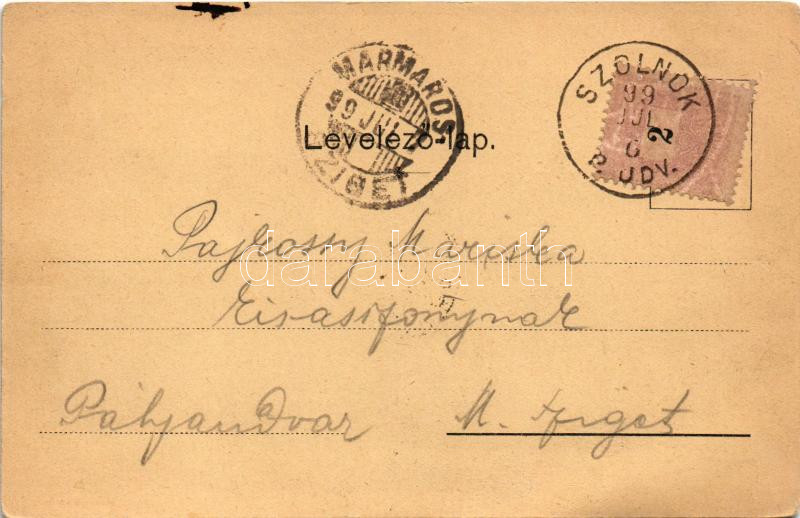 MARMAROS-
99 JUL 7
SZIGET
SZOLNOK
99
JUL
6
P. UDV.
2
Levelező-lap.
Pajkossy Mariska
kisasszonynak
darabanth
Pályaudvar M. Sziget